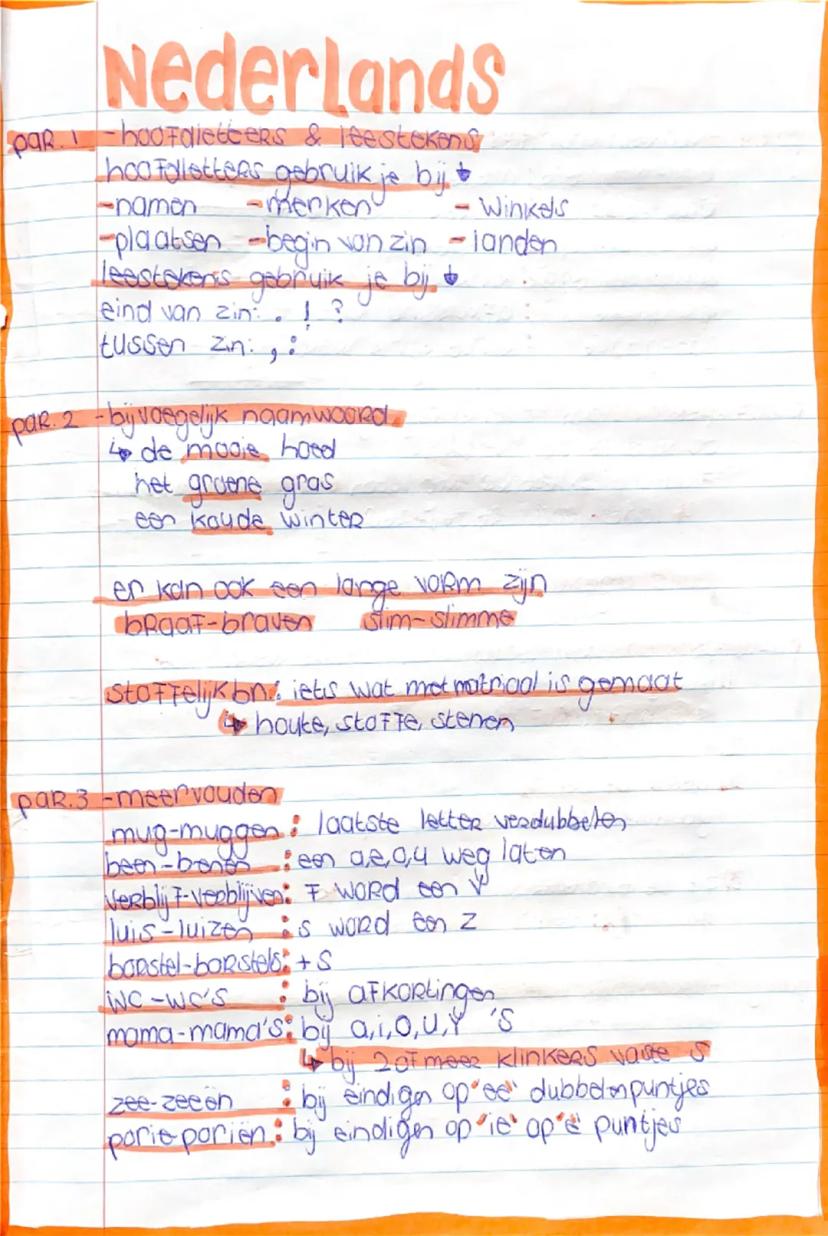 Nederlands
par. 1 -hoofdletters & leestekens
hoofdletters gebruik je bij ↓
-namen -merken - winkels
-plaatsen -begin van zin - landen
leestekens gebruik je bij ↓
eind van zin: . ! ?
tussen zin: , :
par. 2 -bijvoegelijk naamwoord
↳ de mooie hoed
het groene gras
een koude winter
er kan ook een lange vorm zijn
braaf-braven slim-slimme
stoffelijk bn.: iets wat met matriaal is gemaat
↳ houte, stoffe, stenen
par. 3 -meervouden
mug-muggen : laatste letter verdubbelen
been-benen : een a,e,o,u weg laten
verblijf-verblijven: f word een v
luis-luizen : s word een z
borstel-borstels: + s
wc -wc's : bij afkortingen
mama-mama's: bij a,i,o,u,y 's
↳ bij 2 of meer klinkers vaste s
zee-zeeën : bij eindigen op 'ee' dubbelenpuntjes
porie-poriën : bij eindigen op 'ie' op 'e' puntjes